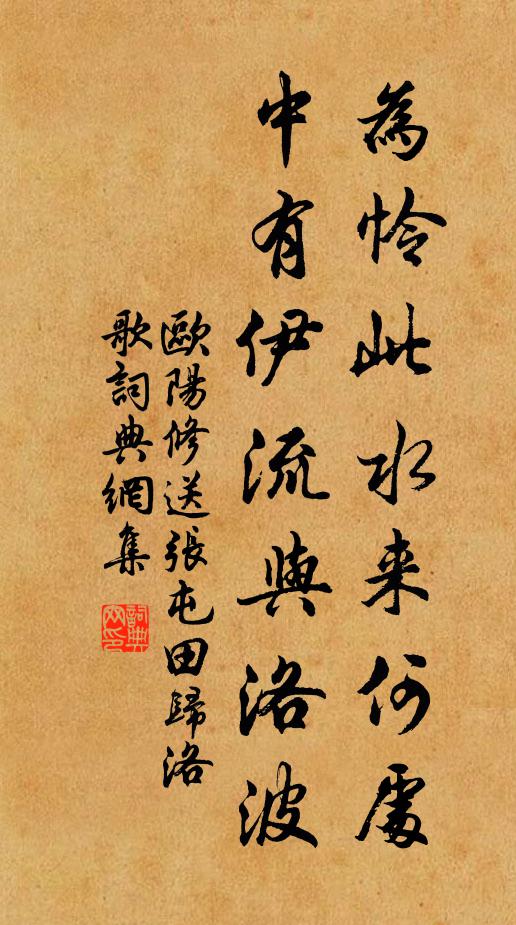 為怜此水来何處
中有伊流與洛波
歐陽修送張屯田歸洛
歌詞典網集
詞典網印